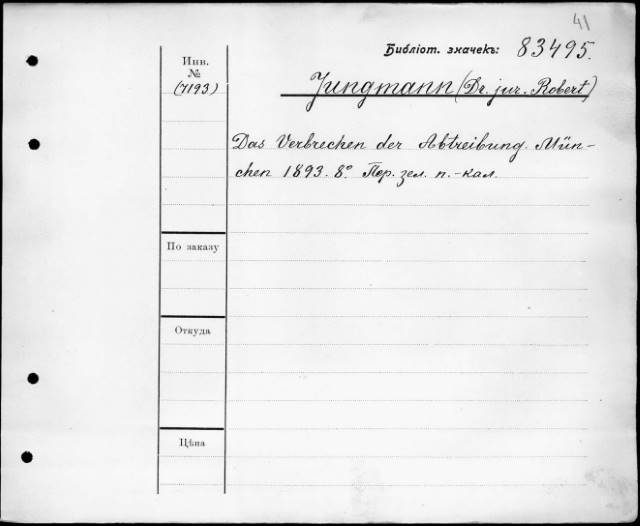 41
Библіот. значекъ: 83495.
Инв.
№
(7193)
Jungmann (Dr. jur. Robert)
Das Verbrechen der Abtreibung. Mün-
chen 1893. 8º. Пер. зел. п.-кал.
По заказу
Откуда
Цѣна